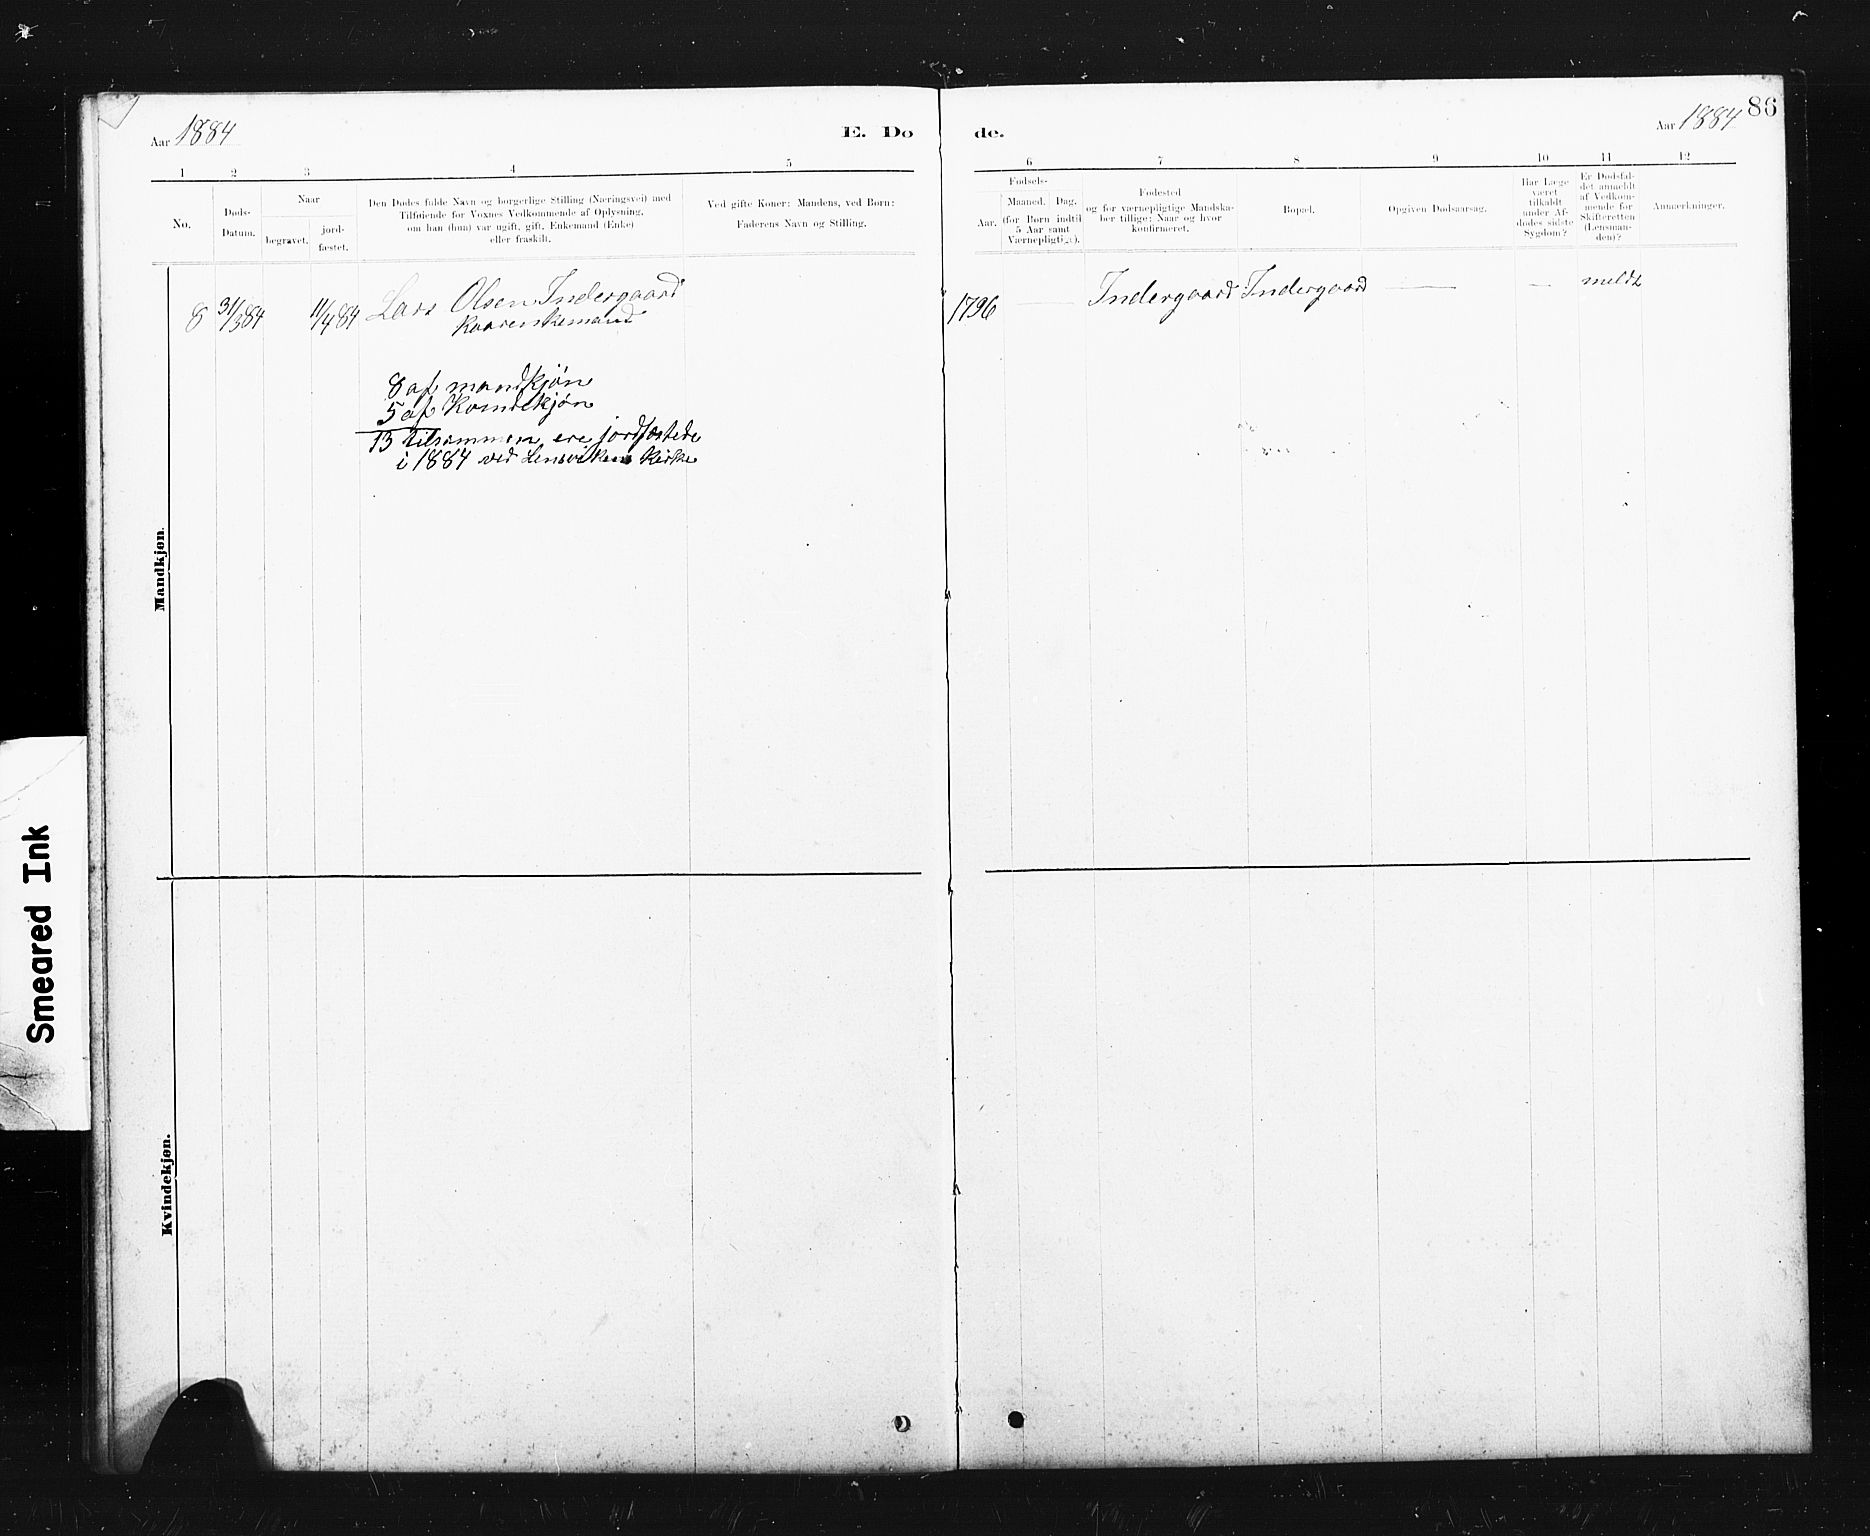 Aar 1884
E. Do
de.
Aar 1884
86
1 2 3 4 5 6 7 8 9 10 11 12
No.
Døds-
Datum.
Naar
begravet.
jord-
fæstet.
Den Dødes fulde Navn og borgerlige Stilling (Næringsvei) med
Tilføiende for Voxnes Vedkommende af Oplysning,
om han (hun) var ugift, gift, Enkemand (Enke)
eller fraskilt.
Ved gifte Koner: Mandens, ved Børn:
Faderens Navn og Stilling.
Fødsels-
Aar.
Maaned. Dag.
(for Børn indtil
5 Aar samt
Værnepligtige).
Fødested
og for værnepligtige Mandska-
ber tillige: Naar og hvor
konfirmeret.
Bopæl.
Opgiven Dødsaarsag.
Har Læge
været
tilkaldt
under Af-
dødes sidste
Sygdom?
Er Dødsfal-
det anmeldt
af Vedkom-
mende for
Skifteretten
(Lensman-
den)?
Anmærkninger.
8 31/3 84 11/4 84 Lars Olsen Indergaard 1796 — Indergaard Indergaard — — meldt
Kaarenkemand
8 af mandkjøn
5 af Kvindekjøn
13 tilsammen ere jordfæstede
i 1884 ved Lensvikens Kirke
Mandkjøn.
Kvindekjøn.
Smeared Ink